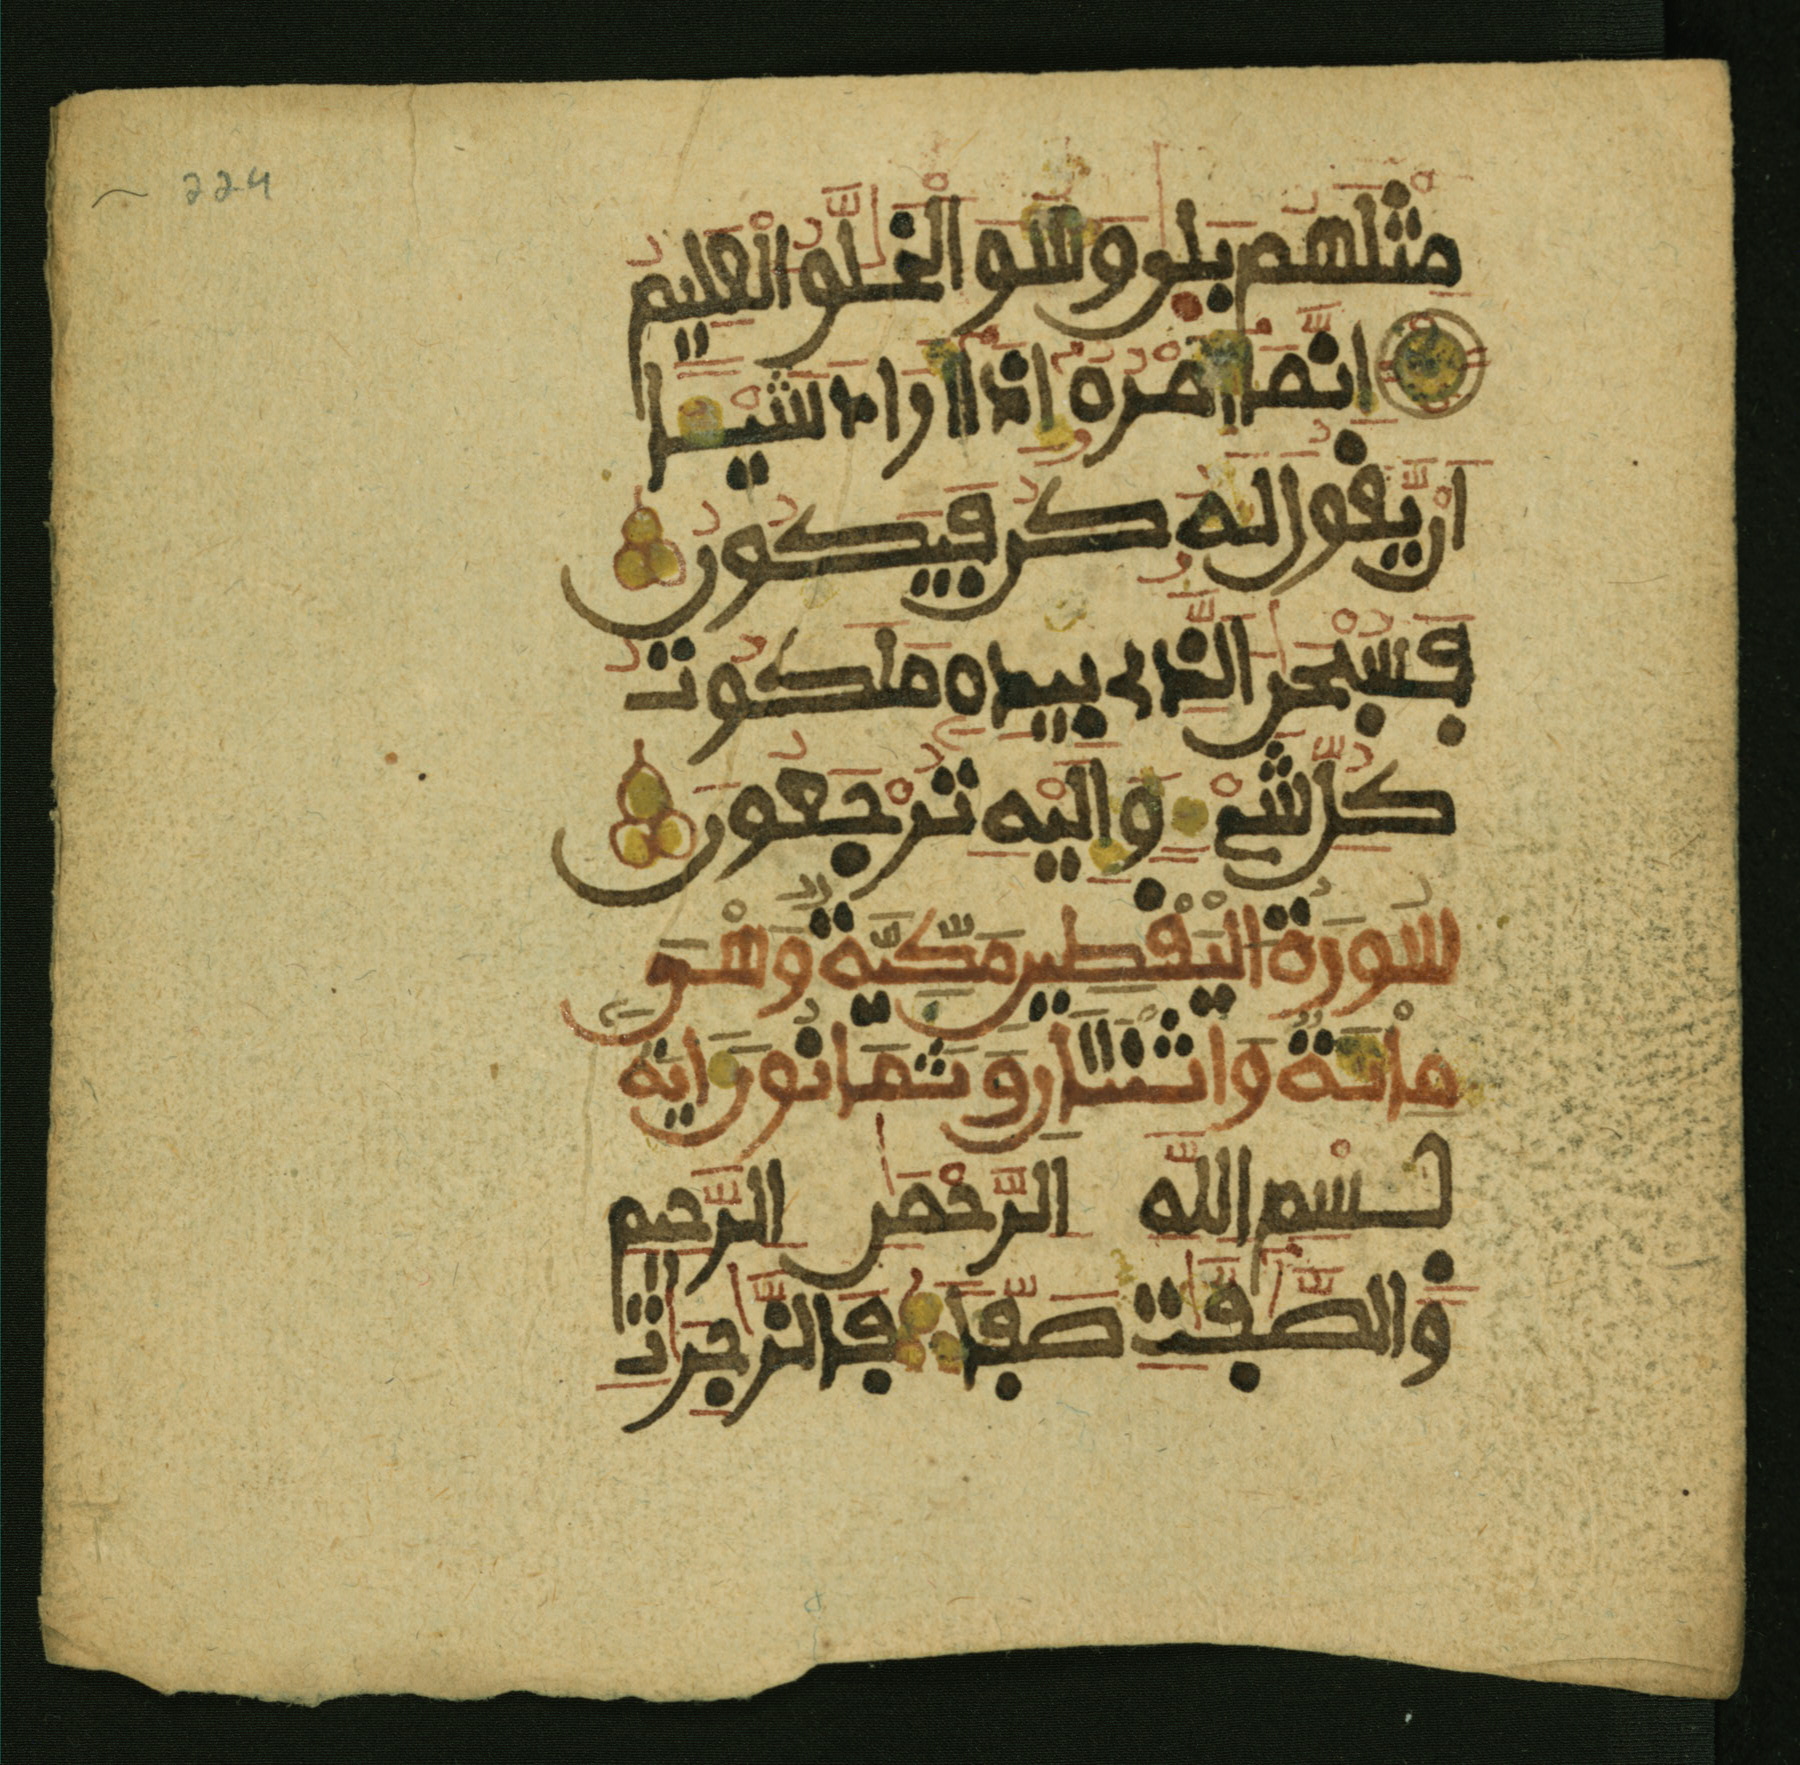 224
مِثْلَهُم بَلَىٰ وَهْوَ الْخَلَّٰقُ الْعَلِيمُ
إِنَّمَا أَمْرُهُ إِذَا أَرَادَ شَيْـًٔا
أَنْ يَّقُولَ لَهُ كُن فَيَكُونُ
فَسُبْحَٰنَ الَّذِى بِيَدِهِ مَلَكُوتُ
كُلِّ شَىْءٍ وَإِلَيْهِ تُرْجَعُونَ
سُورَةُ الْيَقْطِينِ مَكِّيَّةٌ وَهْىَ
مِاْئَةٌ وَاثْنَتَانِ وَثَمَانُونَ ايَةً
بِسْمِ اللَّهِ الرَّحْمَٰنِ الرَّحِيمِ
وَالصَّٰٓفَّٰتِ صَفًّا فَالزَّٰجِرَٰتِ